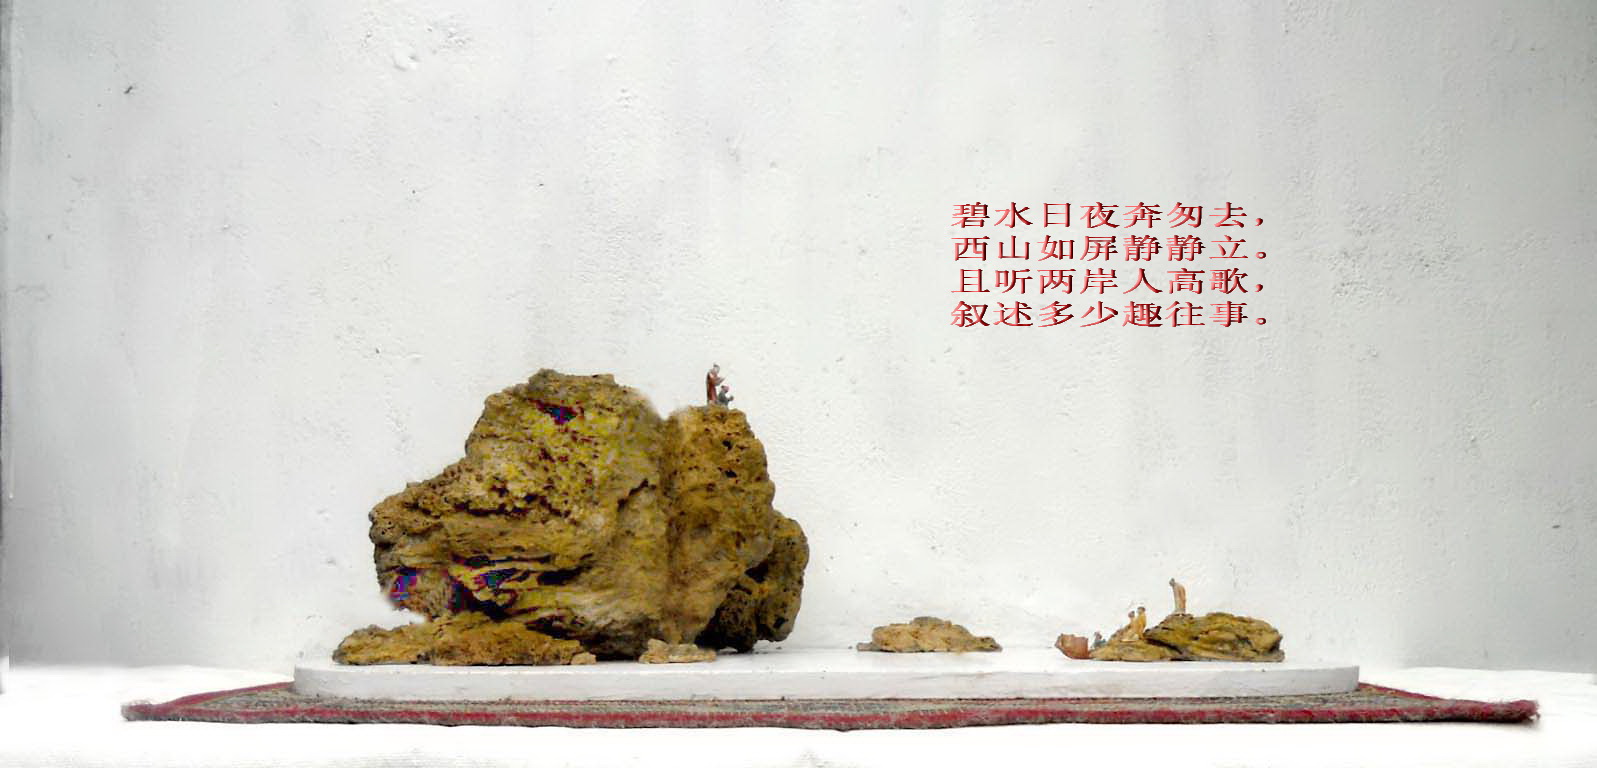 碧水日夜奔匆去，
西山如屏静静立。
且听两岸人高歌，
叙述多少趣往事。